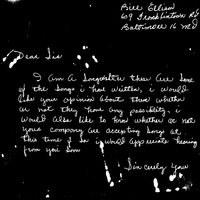 Bill Ellison
609 Franklintown Rd
Baltimore 16 Md
Dear Sir
I Am A Songwriter these Are some
of the songs i have written, i would
like your opinion About them whether
or not they have Any possibility, i
would Also like to know whether or not
your company Are Accepting songs at
this time if so i would appreciate hearing
from you soon
Sincerely yours